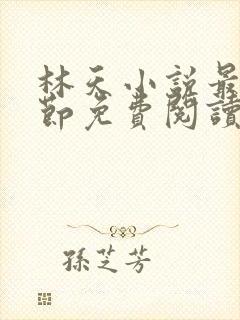 林天小説最
節免費閱讀
孫芝芳